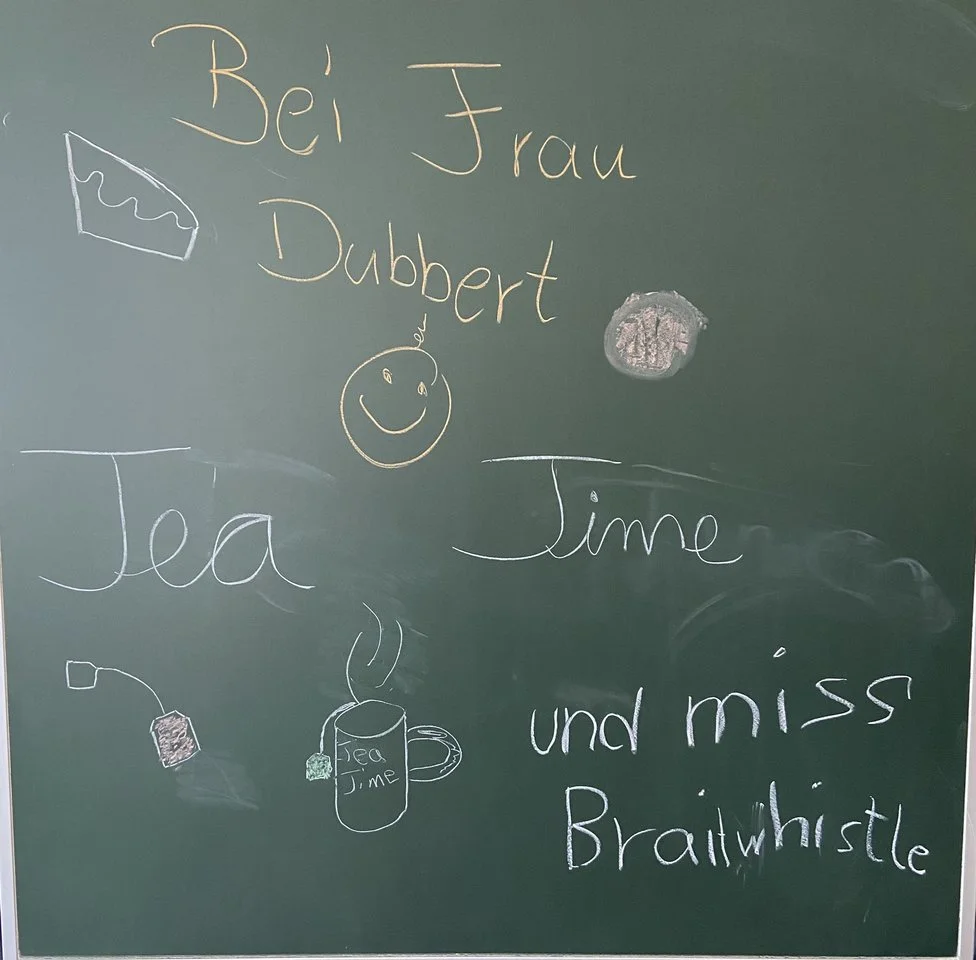 Bei Frau
Dubbert
Tea Time
Tea
Time
und miss
Braitwhistle